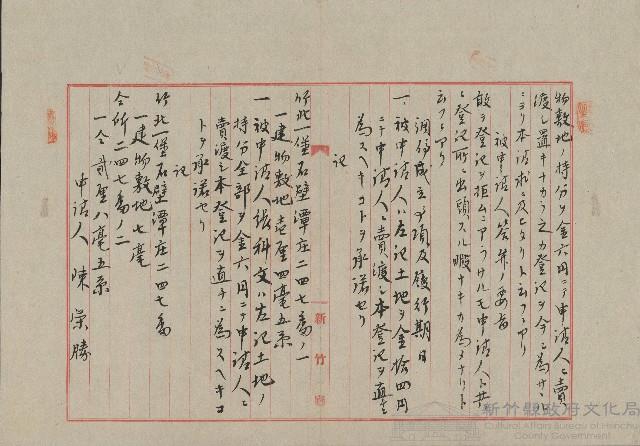 物敷地ノ持分ヲ金六円ニテ申請人ニ賣
渡シ置キナカラ之カ登記ヲ今ニ為サヽル
ニヨリ本請求ニ及ヒタリト云フニアリ
被申請人答弁ノ要旨
敢テ登記ヲ拒ムニアラサルモ申請人ト共
ニ登記所ニ出頭スル暇ナキカ為メナリト
云フニアリ
調停成立事項及履行期日
一、被申請人ハ左記土地ヲ金拾四円
ニテ申請人ニ賣渡シ本登記ヲ直チニ
為スヘキコトヲ承諾セリ
記
竹北一堡石壁潭庄二四七番ノ一
一建物敷地壱厘四毫五糸
一被申請人張科文ハ左記土地ノ
持分全部ヲ金六円ニテ申請人ニ
賣渡シ本登記ヲ直チニ為スヘキコ
トヲ承諾セリ
記
竹北一堡石壁潭庄二四七番
一建物敷地七毫
仝所二四七番ノ二
一仝貳厘八毫五糸
申請人 陳榮勝
新竹
新竹縣政府文化局
Cultural Affairs Bureau of Hsinchu
County Government